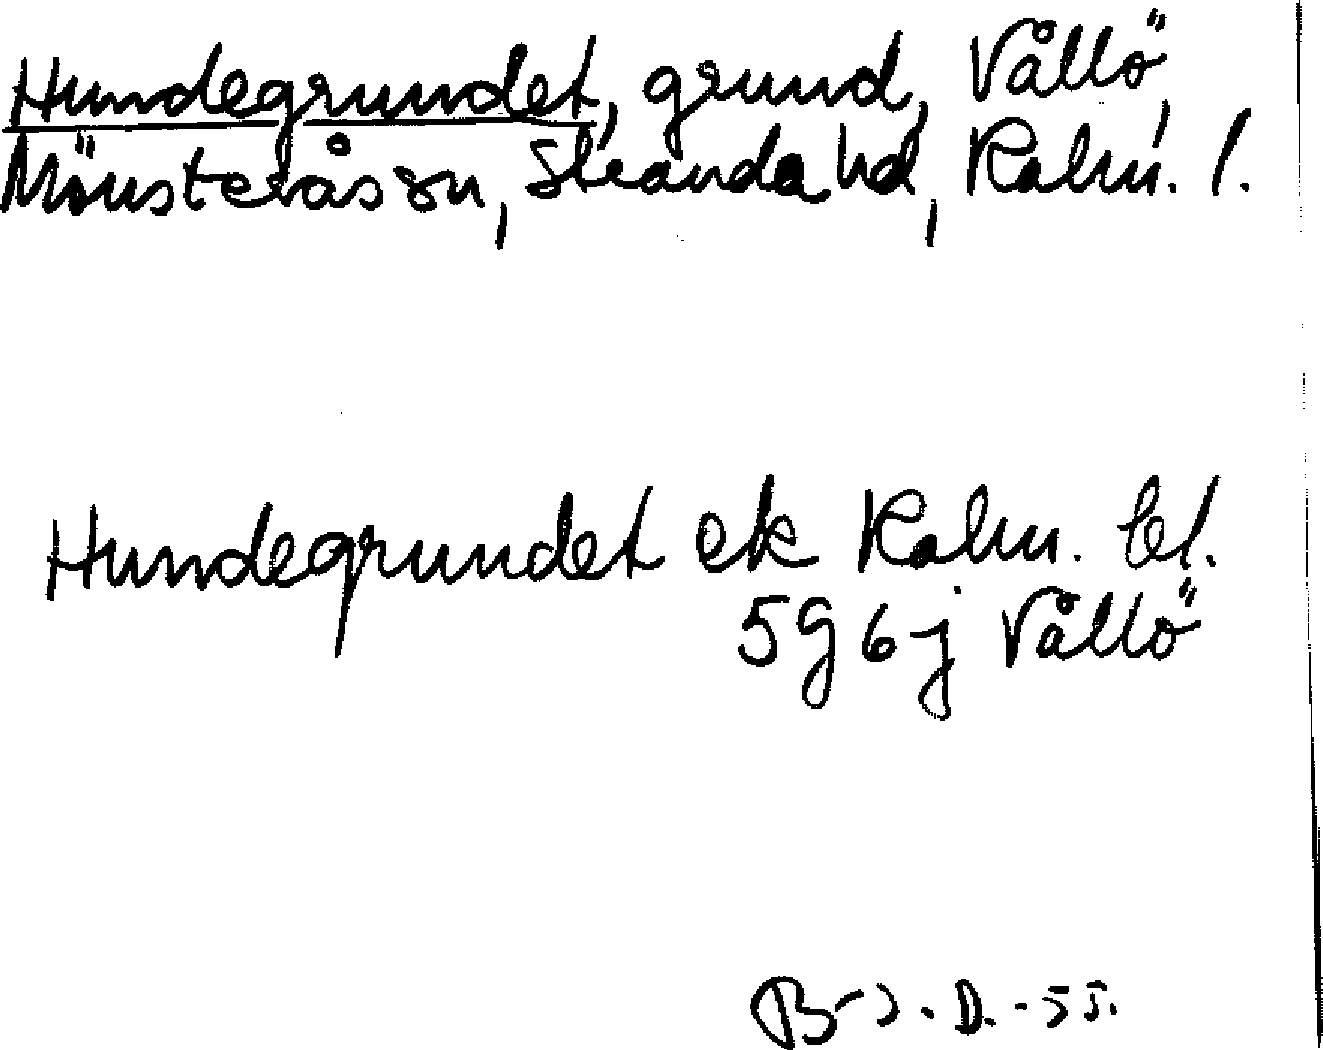 Hundegrundet, grund, Vållö,
Mönsterås sn, Stranda hd, Kalm. l.
Hundegrundet ek Kalm. bl.
5g6j Vållö
B-J. D. -55.